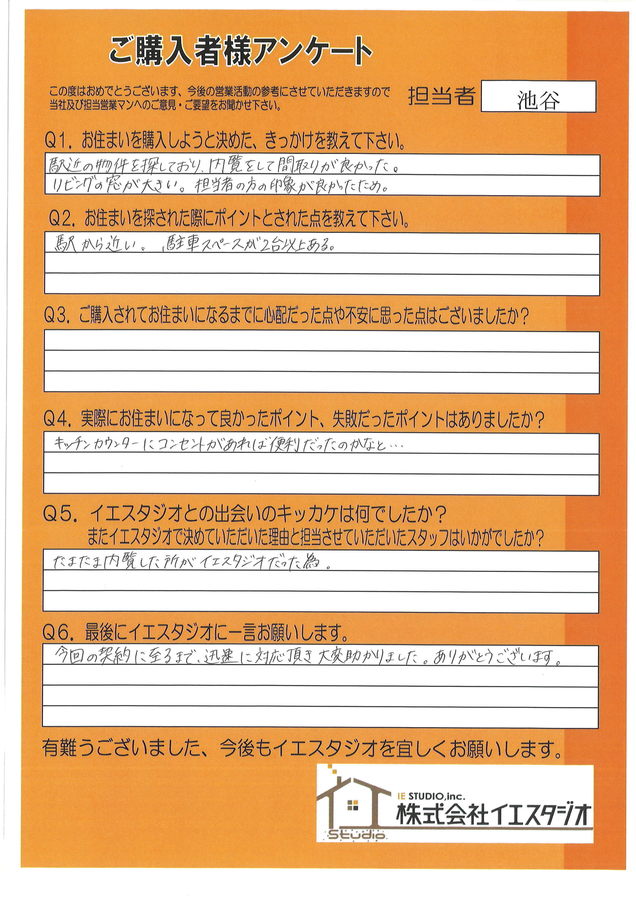 ご購入者様アンケート
この度はおめでとうございます、今後の営業活動の参考にさせていただきますので
当社及び担当営業マンへのご意見・ご要望をお聞かせ下さい。
担当者 池谷
Q1. お住まいを購入しようと決めた、きっかけを教えて下さい。
駅近の物件を探しており、内覧をして間取りが良かった。
リビングの窓が大きい。担当者の方の印象が良かったため。
Q2. お住まいを探された際にポイントとされた点を教えて下さい。
駅から近い。駐車スペースが2台以上ある。
Q3. ご購入されてお住まいになるまでに心配だった点や不安に思った点はございましたか？
Q4. 実際にお住まいになって良かったポイント、失敗だったポイントはありましたか？
キッチンカウンターにコンセントがあれば便利だったのかなと…
Q5. イエスタジオとの出会いのキッカケは何でしたか？
またイエスタジオで決めていただいた理由と担当させていただいたスタッフはいかがでしたか？
たまたま内覧した所がイエスタジオだった為。
Q6. 最後にイエスタジオに一言お願いします。
今回の契約に至るまで、迅速に対応頂き大変助かりました。ありがとうございます。
有難うございました、今後もイエスタジオを宜しくお願いします。
IE STUDIO,inc.
株式会社イエスタジオ
Studio